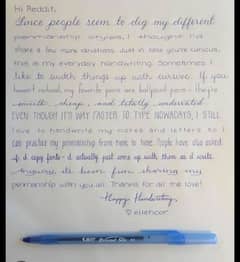 Hi Reddit,
Since people seem to dig my different
penmanship styles, I thought I'd
share a few more variations. Just in case you're curious,
this is my everyday handwriting. Sometimes I
like to switch things up with cursive. If you
haven't noticed, my favorite pens are ballpoint pens - they're
smooth, cheap, and totally underrated.
EVEN THOUGH IT'S WAY FASTER TO TYPE NOWADAYS, I STILL
love to handwrite my notes and letters so I
can practice my penmanship from time to time. People have also asked
if I copy fonts - I actually just come up with them as I write.
Anyway, it's been fun sharing my
penmanship with you all. Thanks for all the love!
Happy Handwriting,
♡ellencor
BIC